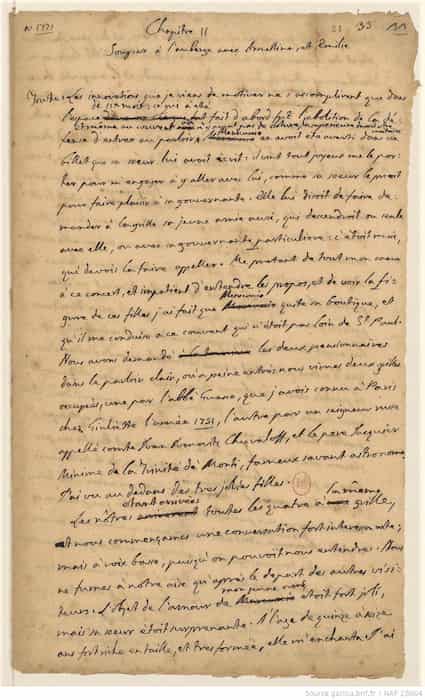 Chapitre II
33
Souper à l'auberge avec Armelline, et Emilie
Toutes les innovations que je viens de motiver ne s'accomplirent que dans
l'espace de six mois. ce qui a été fait d'abord fut l'abolition de la dé-
fense d'entrer au parloir; en avoit été averti dans un
billet que sa sœur lui avoit écrit: il vint tout joyeux me le por-
ter pour m'engager à y aller avec lui, comme sa sœur le prioit
pour faire plaisir à sa gouvernante. Elle lui disoit de faire de-
mander à la grille sa jeune amie aussi, qui descendroit ou seule
avec elle, ou avec sa gouvernante particulière: c'étoit moi,
qui devois la faire appeller. Me pretant de tout mon cœur
à ce concert, et impatient d'entendre les propos, et de voir la fi-
gure de ces filles, j'ai fait que quite sa boutique, et
qu'il me conduise à ce couvent qui n'étoit pas loin de St Paul.
Nous avons demandé les deux pensionnaires
dans le parloir clair, où à peine entrés nous vimes deux grilles
occupées, une par l'abbé Guasco, que j'avois connu à Paris
chez Giuliette l'année 1751, l'autre par un seigneur russe
appellé comte Ivan Ivanovitz Chouvaloff, et le pere Jacquier
Minime de la Trinité de Monti, fameux savant astronome.
J'ai vu au dedans des tres jolies filles.
Les nôtres étant arrivées toutes les quatre à la même grille,
nous commençames une conversation fort interessante;
mais à voix basse, puisqu'on pouvoit nous entendre. Nous
ne fumes à notre aise qu'après le depart des autres visi-
teurs. L'objet de l'amour de mon jeune étoit fort joli,
mais sa sœur étoit surprenante. A l'age de quinze à seize
ans fort riche en taille, et tres formée, elle m'enchanta. J'ai
Source gallica.bnf.fr / NAF 28604